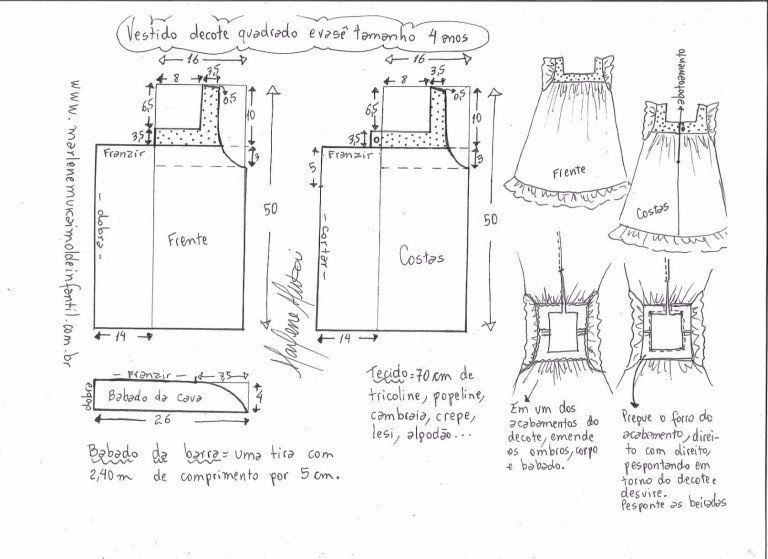 Vestido decote quadrado evasê tamanho 4 anos
www.marlenemukaimoldeinfantil.com.br
16
8
3,5
6,5
0,5
10
3,5
Franzir
3
50
- dobra -
Frente
14
Marlene Mukai
16
8
3,5
6,5
0,5
10
3,5
Franzir
3
5
50
- cortar -
Costas
14
abotoamento
Frente
Costas
- Franzir -
3,5
dobra
Babado da cava
4
26
Babado da barra = uma tira com
2,40 m de comprimento por 5 cm.
Tecido = 70 cm de
tricoline, popeline,
cambraia, crepe,
lesi, algodão...
Em um dos
acabamentos do
decote, emende
os ombros, corpo
e babado.
Pregue o forro do
acabamento, direi-
to com direito,
pespontando em
torno do decote e
desvire.
Pesponte as beiradas